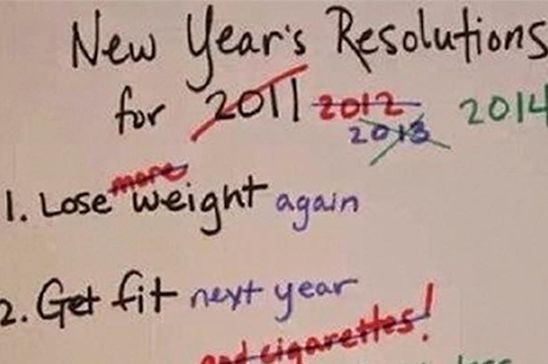 New Year's Resolutions
for 2011 2012 2014
2013
more
1. Lose weight again
2. Get fit next year
and cigarettes!
less